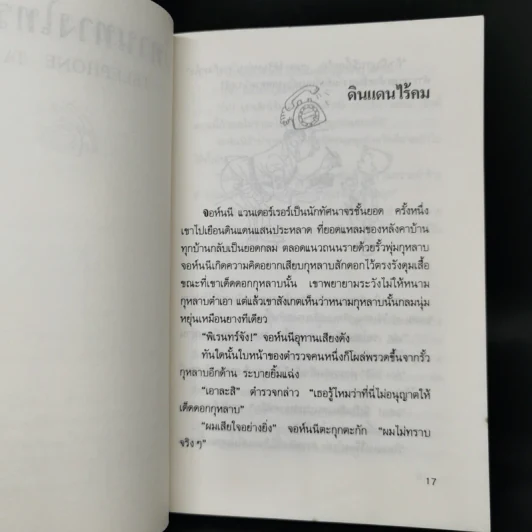 ดินแดนไร้คม
จอห์นนี แวนเดอร์เรอร์เป็นนักทัศนาจรชั้นยอด ครั้งหนึ่ง
เขาไปเยือนดินแดนแสนประหลาด ที่ยอดแหลมของหลังคาบ้าน
ทุกบ้านกลับเป็นยอดกลม ตลอดแนวถนนรายด้วยรั้วพุ่มกุหลาบ
จอห์นนีเกิดความคิดอยากเสียบกุหลาบสักดอกไว้ตรงรังดุมเสื้อ
ขณะที่เขาเด็ดดอกกุหลาบนั้น เขาพยายามระวังไม่ให้หนาม
กุหลาบตำเอา แต่แล้วเขาสังเกตเห็นว่าหนามกุหลาบนั้นกลมนุ่ม
หยุ่นเหมือนยางทีเดียว
"พิเรนทร์จัง!" จอห์นนีอุทานเสียงดัง
ทันใดนั้นใบหน้าของตำรวจคนหนึ่งก็โผล่พรวดขึ้นจากรั้ว
กุหลาบอีกด้าน ระบายยิ้มแฉ่ง
"เอาละสิ" ตำรวจกล่าว "เธอรู้ไหมว่าที่นี่ไม่อนุญาตให้
เด็ดดอกกุหลาบ"
"ผมเสียใจอย่างยิ่ง" จอห์นนีตะกุกตะกัก "ผมไม่ทราบ
จริงๆ"
17